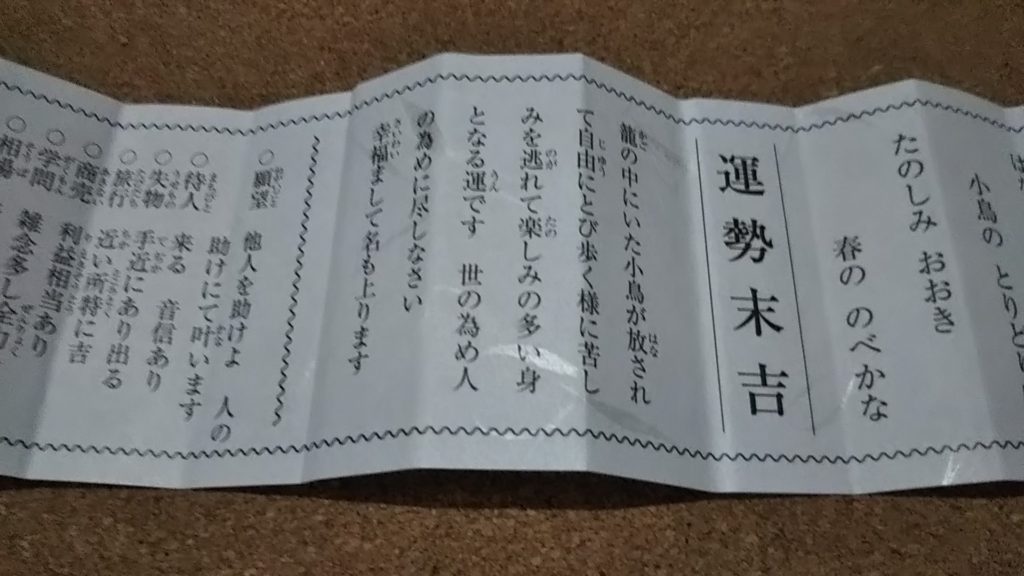 小鳥の とりどりに
たのしみ おおき
春の のべかな
運勢末吉
籠の中にいた小鳥が放され
て自由にとび歩く様に苦し
みを逃れて楽しみの多い身
となる運です 世の為め人
の為めに尽しなさい
幸福まして名も上ります
○願望 他人を助けよ 人の
助けにて叶います
○待人 来る 音信あり
○失物 手近にあり出る
○旅行 近い所特に吉
○商売 利益相当あり
○学問 雑念多し全力
○相場